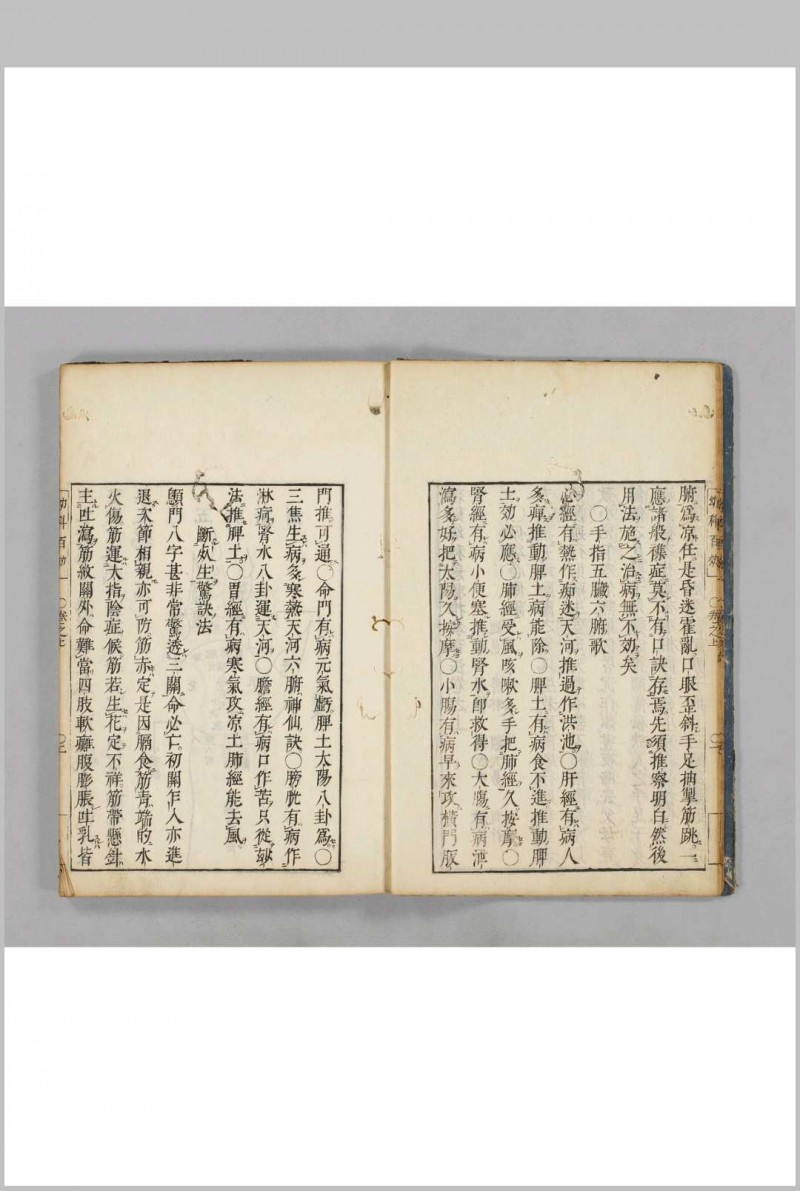 腑爲凉任是昏迷霍亂口眼歪斜手足抽掣筋跳一
應諸般襍症莫不有口訣存焉先須推察明白然後
用法施之治病無不効矣
〇手指五臟六腑歌
心經有熱作痴迷天河推過作洪池〇肝經有病人
多痺推動脾土病能除〇脾土有病食不進推動脾
土効必應〇肺經受風咳嗽多手把肺經久按摩〇
腎經有病小便塞推動腎水卽救得〇大腸有病泄
瀉多好把大陽久按摩〇小腸有病早來攻橫門版
門推可通〇命門有病元氣虧脾土太陽八卦爲〇
三焦生病多寒熱天河六腑神仙訣〇膀胱有病作
淋痾腎水八卦運天河〇膽經有病口作苦只從
法推脾土〇胃經有病寒氣攻凉土肺經能去風
斷生驚訣法
顖門八字甚非常驚透三關命必亡初關乍入亦進
退次節相親亦可防筋赤定是因膈食筋青端的水
火傷筋運大指陰症候筋若生花定不祥筋帶懸針
主吐瀉筋紋關外命難當四肢軟癱腹膨脹吐乳皆
幼科百効 〇卷之上